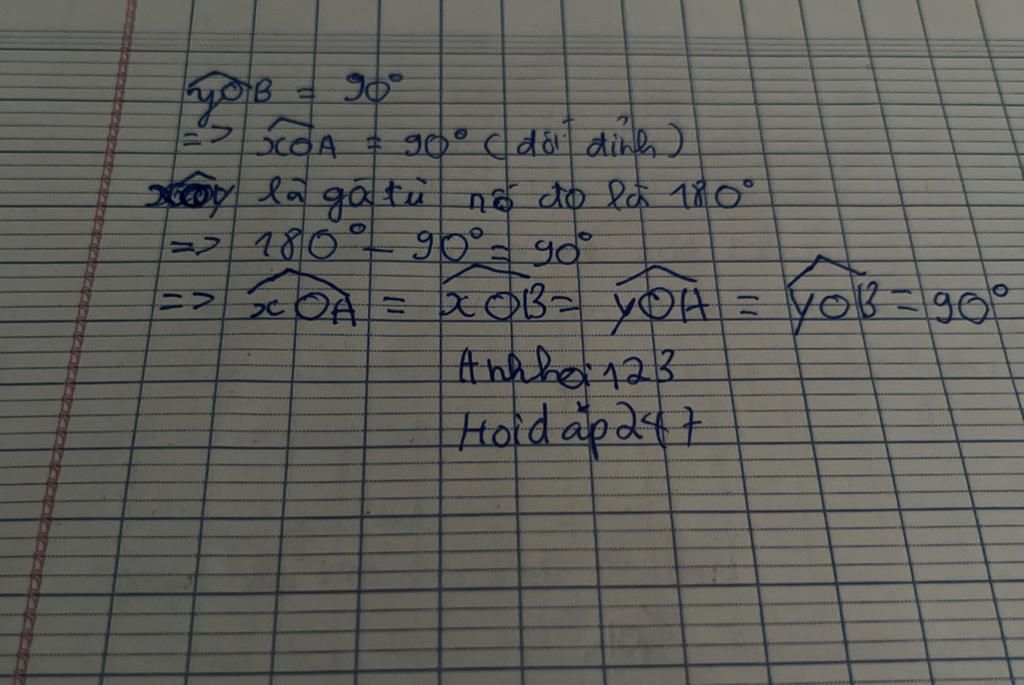 yOB = 90°
=> xOA = 90° (đối đỉnh)
là gó tù nố đo là 180°
=> 180° - 90° = 90°
=> xOA = xOB = yOA = yOB = 90°
Anhhoi123
Hoidăp247